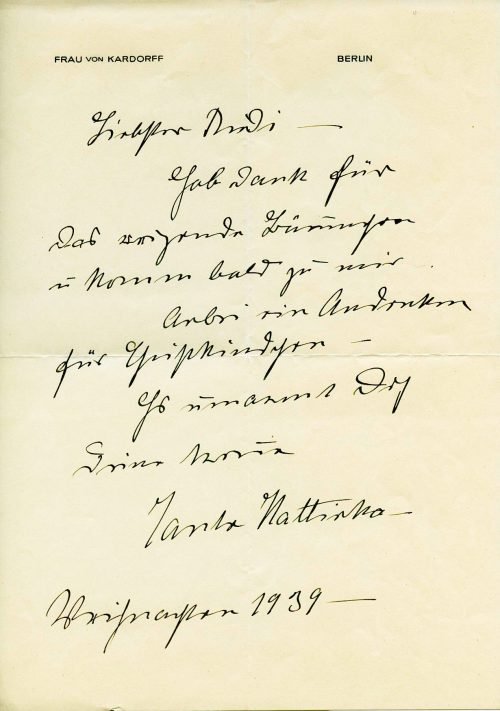 FRAU VON KARDORFF BERLIN
Liebster Rudi —
Hab Dank für
das reizende Bäumchen
u komm bald zu mir
Anbei ein Andenken
für Christkindchen —
Es umarmt Dich
Deine treue
Tante Kattinka —
Weihnachten 1939 —